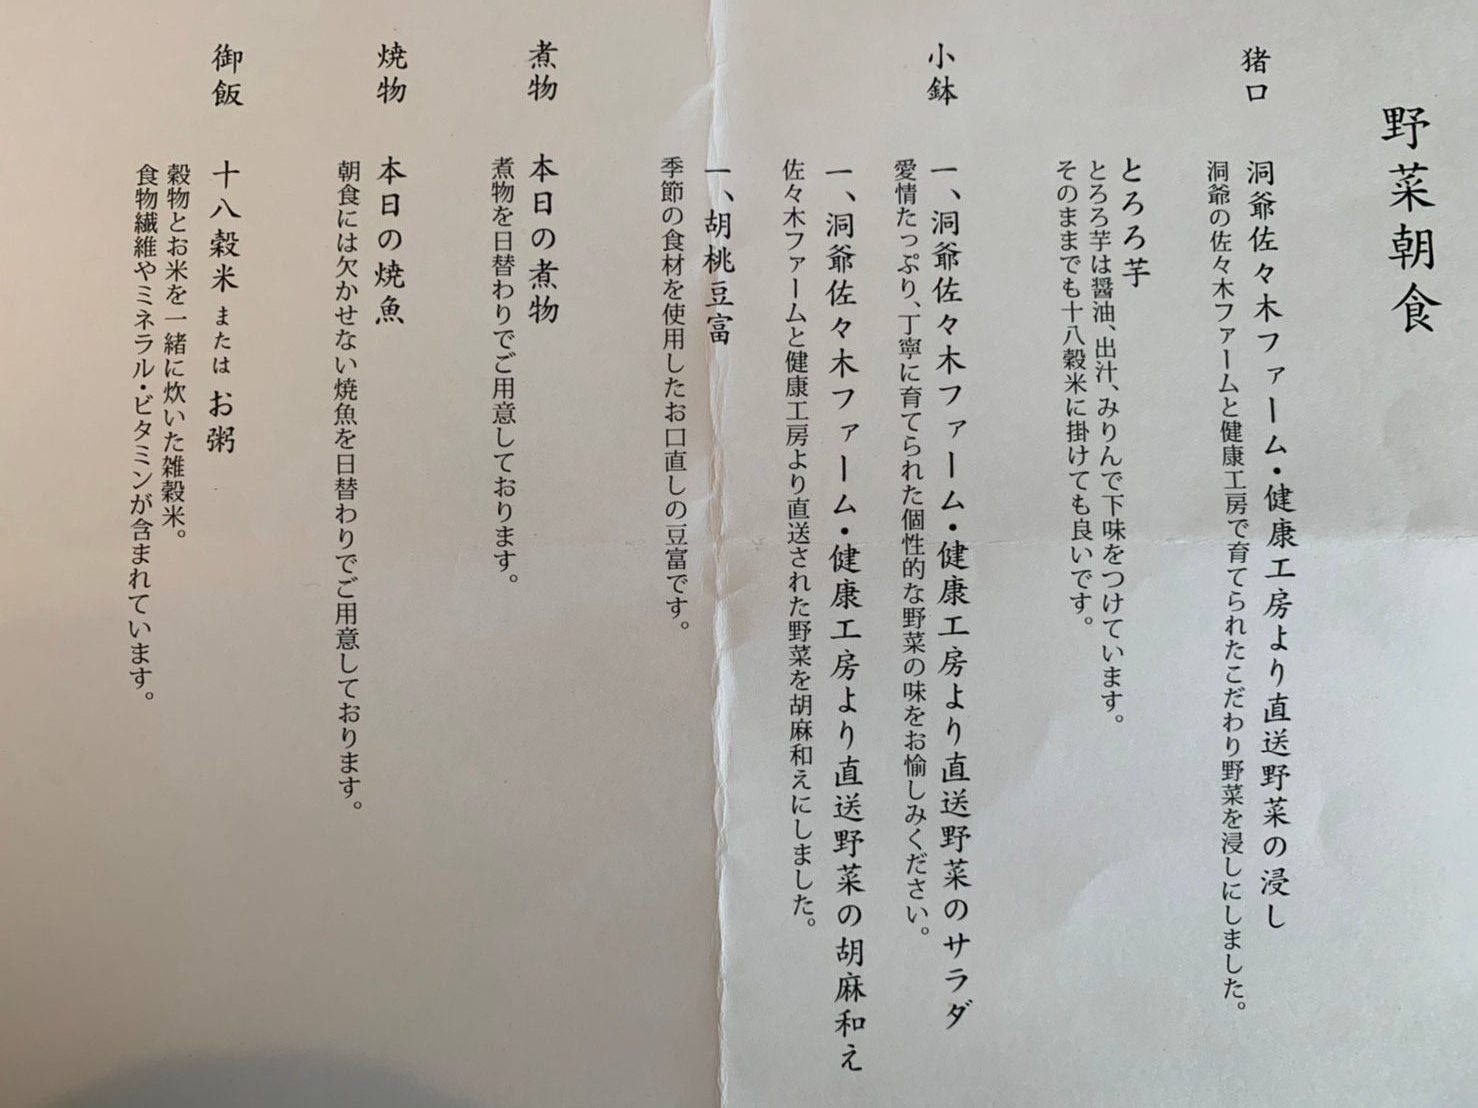 野菜朝食
猪口 洞爺佐々木ファーム・健康工房より直送野菜の浸し
洞爺の佐々木ファームと健康工房で育てられたこだわり野菜を浸しにしました。
とろろ芋
とろろ芋は醤油、出汁、みりんで下味をつけています。
そのままでも十八穀米に掛けても良いです。
小鉢 一、洞爺佐々木ファーム・健康工房より直送野菜のサラダ
愛情たっぷり、丁寧に育てられた個性的な野菜の味をお愉しみください。
一、洞爺佐々木ファーム・健康工房より直送野菜の胡麻和え
佐々木ファームと健康工房より直送された野菜を胡麻和えにしました。
一、胡桃豆富
季節の食材を使用したお口直しの豆富です。
煮物 本日の煮物
煮物を日替わりでご用意しております。
焼物 本日の焼魚
朝食には欠かせない焼魚を日替わりでご用意しております。
御飯 十八穀米 または お粥
穀物とお米を一緒に炊いた雑穀米。
食物繊維やミネラル・ビタミンが含まれています。